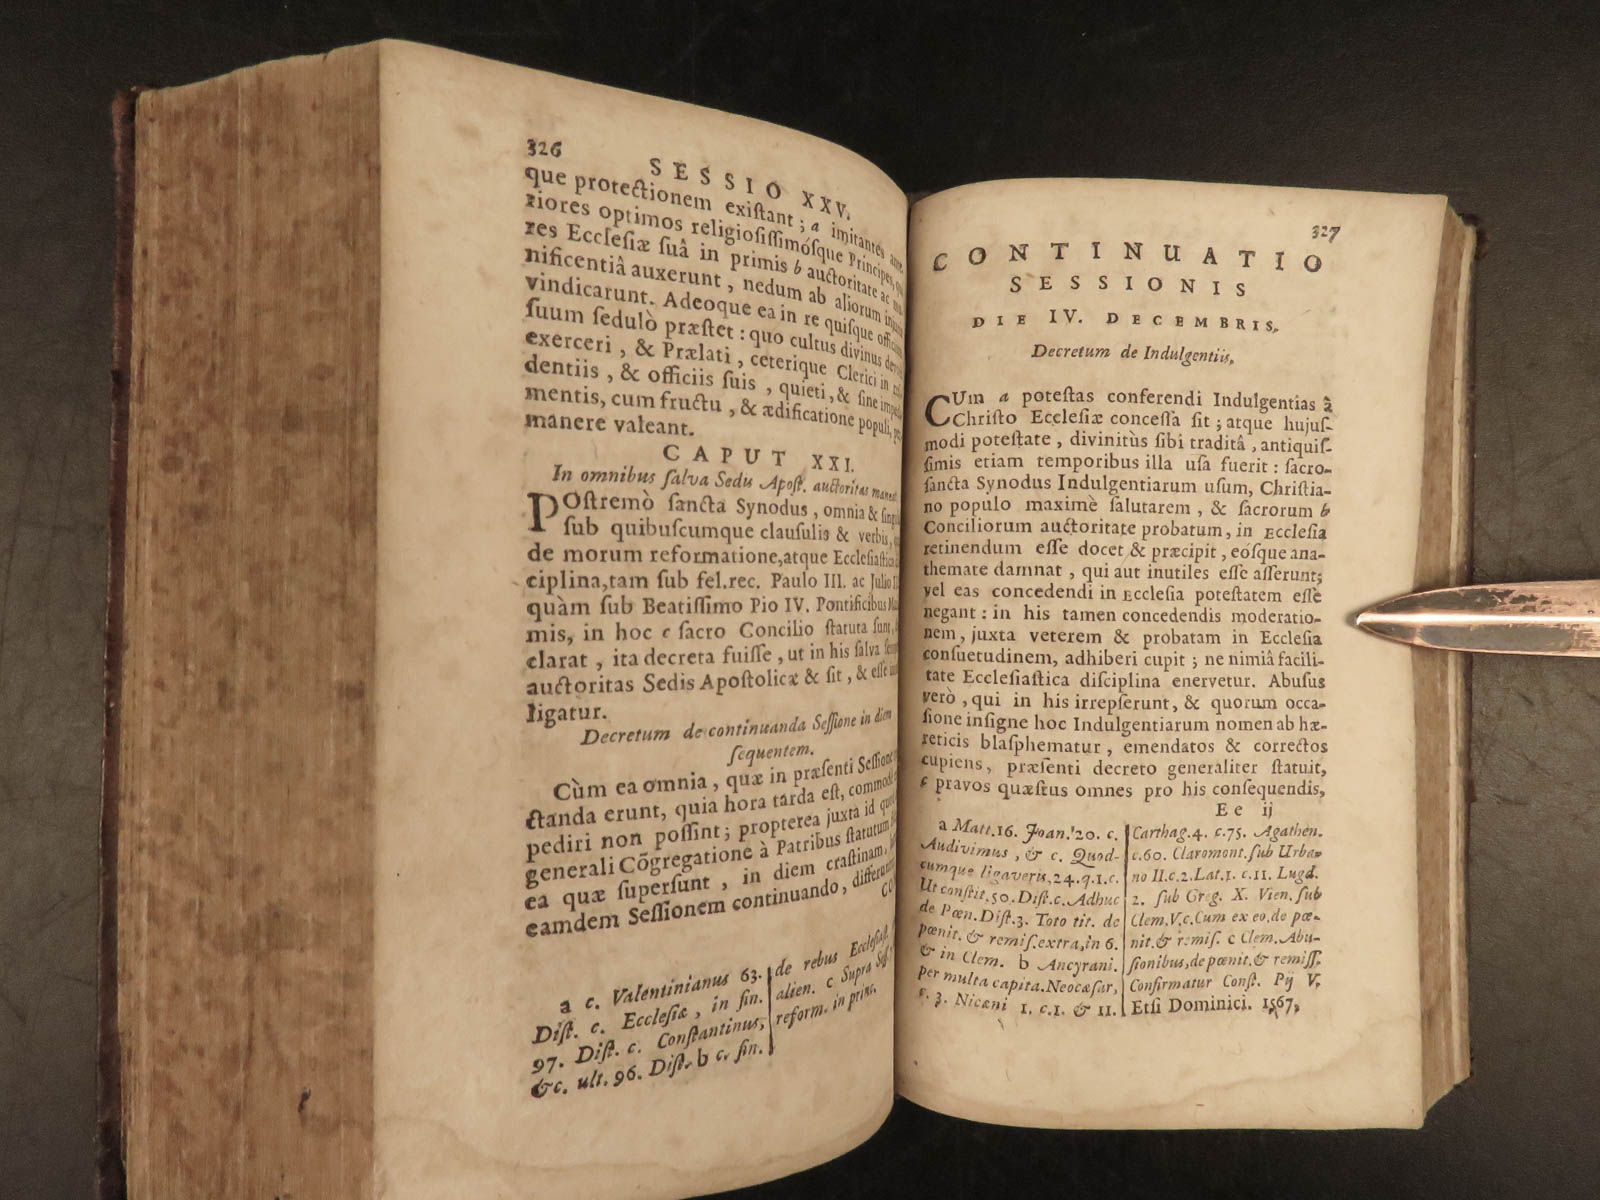 326
SESSIO XXV.
que protectionem existant; a imitantes
riores optimos religiosissimósque Principes,
res Ecclesiæ suâ in primis b auctoritate ac
nificentiâ auxerunt, nedum ab aliorum
vindicarunt. Adeoque ea in re quisque
suum sedulò præstet: quo cultus divinus
exerceri, & Prælati, ceterique Clerici in
dentiis, & officiis suis, quieti, & sine
mentis, cum fructu, & ædificatione populi,
manere valeant.
CAPUT XXI.
In omnibus salva Sedis Apost. auctoritas
POstremò sancta Synodus, omnia &
sub quibuscumque clausulis & verbis,
de morum reformatione, atque
ciplina, tam sub fel. rec. Paulo III. ac Julio
quàm sub Beatissimo Pio IV. Pontificibus
mis, in hoc c sacro Concilio statuta sunt,
clarat, ita decreta fuisse, ut in his salva
auctoritas Sedis Apostolicæ & sit, & esse
ligatur.
Decretum de continuanda Sessione in diem
sequentem.
Cùm ea omnia, quæ in præsenti
ctanda erunt, quia hora tarda est,
pediri non possint; propterea juxta id
generali Cōgregatione à Patribus statutum
ea quæ supersunt, in diem crastinam,
eamdem Sessionem continuando,
CO
a c. Valentinianus 63.
Dist. c. Ecclesiæ, in fin.
97. Dist. c. Constantinus,
&c. ult. 96. Dist. b c. fin.
de rebus Ecclesiast.
alien. c Supra Sess.
reform. in princ.
327
CONTINUATIO
SESSIONIS
DIE IV. DECEMBRIS.
Decretum de Indulgentiis.
CUm a potestas conferendi Indulgentias à
Christo Ecclesiæ concessa sit; atque hujus-
modi potestate, divinitùs sibi traditâ, antiquis-
simis etiam temporibus illa usa fuerit: sacro-
sancta Synodus Indulgentiarum usum, Christia-
no populo maximè salutarem, & sacrorum b
Conciliorum auctoritate probatum, in Ecclesia
retinendum esse docet & præcipit, eósque ana-
themate damnat, qui aut inutiles esse asserunt;
vel eas concedendi in Ecclesia potestatem esse
negant: in his tamen concedendis moderatio-
nem, juxta veterem & probatam in Ecclesia
consuetudinem, adhiberi cupit; ne nimiâ facili-
tate Ecclesiastica disciplina enervetur. Abusus
verò, qui in his irrepserunt, & quorum occa-
sione insigne hoc Indulgentiarum nomen ab hæ-
reticis blasphematur, emendatos & correctos
cupiens, præsenti decreto generaliter statuit,
c pravos quæstus omnes pro his consequendis,
Ee ij
a Matt. 16. Joan. 20. c.
Audivimus, & c. Quod-
cumque ligaveris. 24. q. 1. c.
Ut constit. 50. Dist. c. Adhuc
de Pœn. Dist. 3. Toto tit. de
pœnit. & remis. extra, in 6.
& in Clem. b Ancyrani.
per multa capita. Neocæsar,
c. 3. Nicæni 1. c. 1. & 11.
Carthag. 4. c. 75. Agathen.
c. 60. Claromont. sub Urba-
no II. c. 2. Lat. 1. c. 11. Lugd.
2. sub Greg. X. Vien. sub
Clem. V. c. Cum ex eo, de pœ-
nit. & remis. c Clem. Abu-
sionibus, de pœnit. & remiss.
Confirmatur Const. Pij V.
Etsi Dominici. 1567.